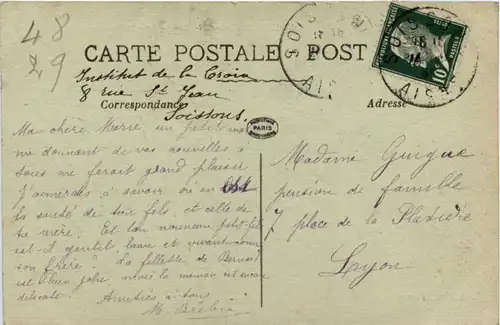 48
29
CARTE POSTALE
POST
SOIS
AIS
SOIS
AIS
10c
Institut de la Croix
8 rue St Jean
Soissons
Correspondance
Adresse
PARIS
Ma chère Marie, un petit mot
me donnant de vos nouvelles à
tous me ferait grand plaisir
J'aimerais à savoir où en est
la santé de ton fils, et celle de
ta mère. Et ton nouveau petit-fils
est-il gentil beau et vivant comme
son frère? La fillette de Bernard
est bien jolie, mais la maman est encore
délicate. Amitiés à tous
M.
Madame
pension de famille
7 place de la Platière
Lyon